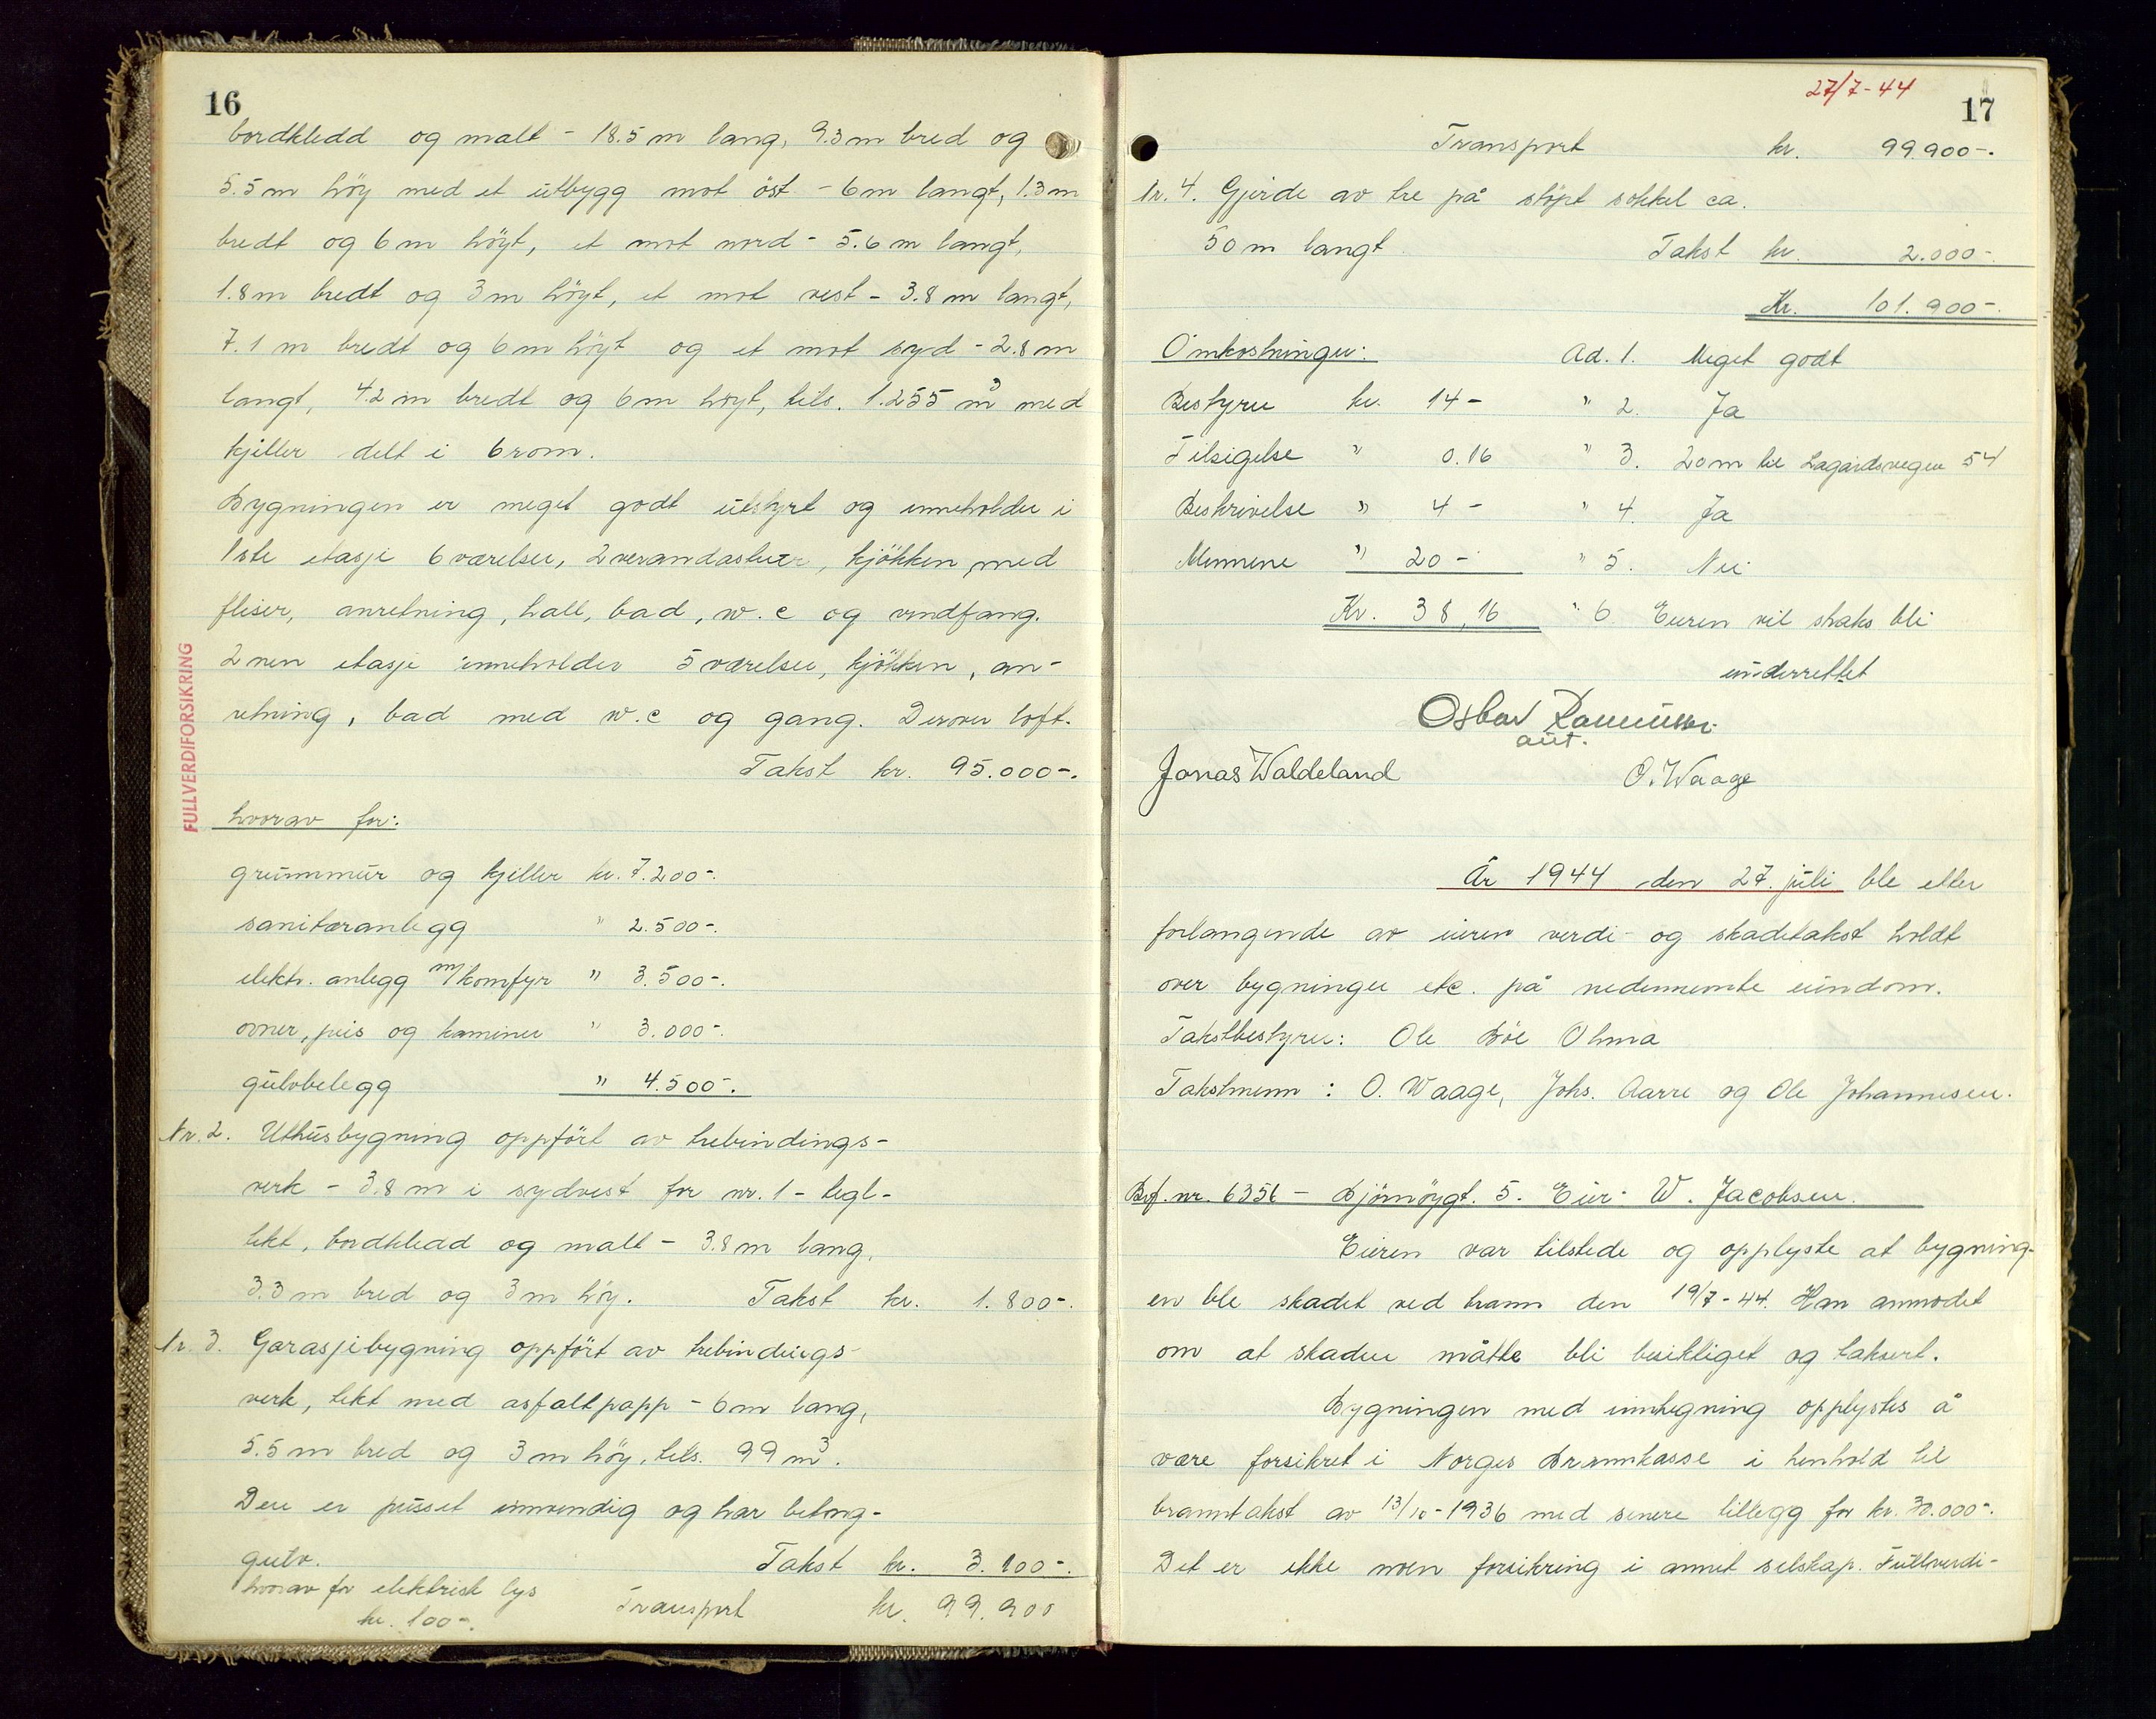 16
bordkledd og malt - 18.5 m lang, 9.3 m bred og
5.5 m höy med et utbygg mot öst - 6 m langt, 1.3 m
bredt og 6 m höyt, et mot nord - 5.6 m langt,
1.8 m bredt og 3 m höyt, et mot vest - 3.8 m langt,
7.1 m bredt og 6 m höyt og et mot syd - 2.8 m
langt, 4.2 m bredt og 6 m höyt, tils. 1.255 m³ med
kjeller delt i 6 rom.
Bygningen er meget godt utstyrt og inneholder i
1ste etasje 6 værelser, 2 verandastuer, kjökken med
fliser, anretning, hall, bad, w.c og vindfang.
2nen etasje inneholder 5 værelser, kjökken, an-
retning, bad med w.c og gang. Derover loft.
Takst kr. 95.000-.
FULLVERDIFORSIKRING
hvorav for:
grunnmur og kjeller kr. 7.200-.
sanitæranlegg " 2.500-.
elektr. anlegg m/komfyr " 3.500-.
ovner, peis og kaminer " 3.000-.
gulvbelegg " 4.500-.
Nr. 2. Uthusbygning oppfört av trebindings-
verk - 3.8 m i sydvest for nr. 1 - tegl-
tekt, bordkledd og malt - 3.8 m lang,
3.3 m bred og 3 m höy. Takst kr. 1.800-.
Nr. 3. Garasjebygning oppfört av trebindings-
verk, tekt med asfaltpapp - 6 m lang,
5.5 m bred og 3 m höy, tils. 99 m³.
Den er pusset innvendig og har betong-
gulv. Takst kr. 3.100-.
hvorav for elektrisk lys
kr. 100-.
Transport kr. 99.900
27/7-44
17
Transport kr. 99.900-.
Nr. 4. Gjerde av tre på stöpt sokkel ca.
50 m langt. Takst kr. 2.000-.
Kr. 101.900-.
Omkostninger: Ad. 1. Meget godt
Bestyrer kr. 14- " 2. Ja
Tilsigelse " 0.16 " 3. 20 m til Lagårdsvegen 54
Beskrivelse " 4- " 4. Ja
Mennene " 20- " 5. Nei
Kr. 38,16 " 6. Eieren vil straks bli
underrettet
Oskar Rasmussen
aut.
Jonas Waldeland O. Waage
År 1944 den 27. juli ble etter
forlangende av eieren verdi- og skadetakst holdt
over bygninger etc. på nedennevnte eiendom.
Takstbestyrer: Ole Böe Ohma
Takstmenn : O. Waage, Johs. Aarre og Ole Johannesen.
Brf. nr. 6356 - Bjömöygt. 5. Eier: W. Jacobsen.
Eieren var tilstede og opplyste at bygning-
en ble skadet ved brann den 19/7-44. Han anmodet
om at skaden måtte bli besiktiget og taksert.
Bygningen med innhegning opplystes å
være forsikret i Norges Brannkasse i henhold til
branntakst av 13/10-1936 med senere tillegg for kr. 30.000-.
Det er ikke noen forsikring i annet selskap. Fullverdi-